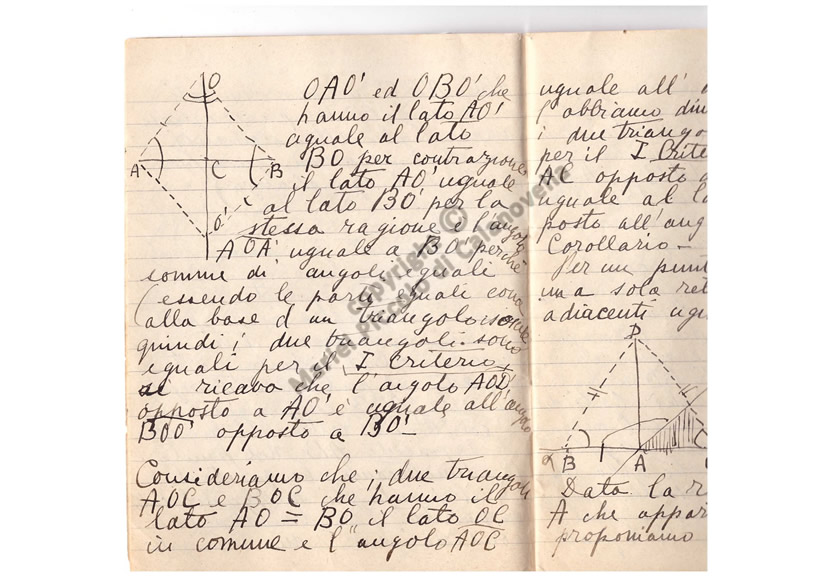 OAO' ed OBO' che
hanno il lato AO'
uguale al lato
BO per contrazione
il lato AO' uguale
al lato BO' per la
stessa ragione e l'angolo
AOA' uguale a BO' perchè
somme di angoli eguali
(essendo le parti eguali come
alla base d un triangolo
quindi i due triangoli sono
eguali per il I Criterio
si ricava che l'angolo
opposto a AO' è uguale all'angolo
BOO' opposto a BO'
Consideriamo che i due triangoli
AOC e BOC che hanno il
lato AO = BO il lato OC
in comune e l'angolo AOC
O
A
C
B
O'
uguale all'
l'abbiamo
i due
per il I
AC opposto
uguale al
posto all'
Corollario -
Per un
una sola
adiacenti
D
B
A
Data la
A che
proponiamo
Copyright ©